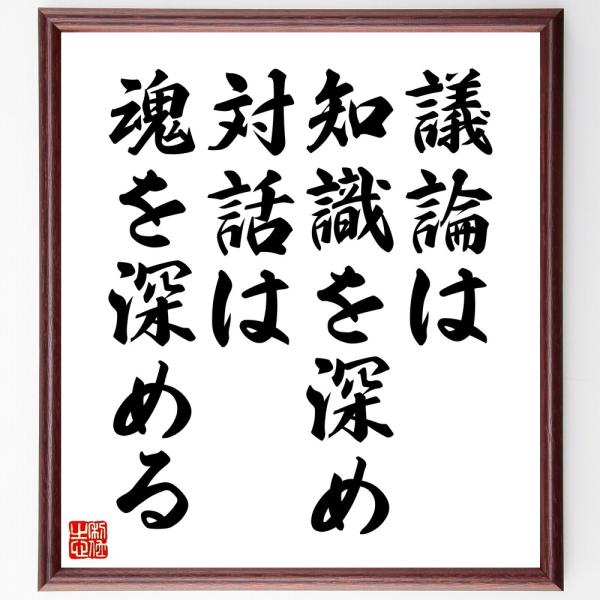 議論は
知識を深め
対話は
魂を深める